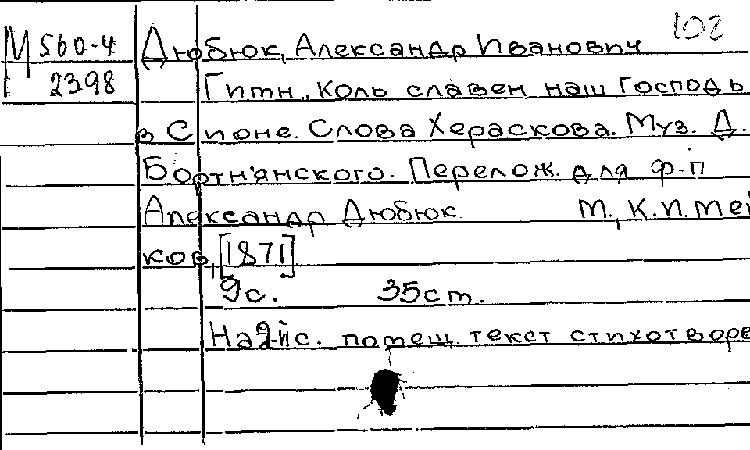 М 560-4 Дюбюк, Александр Иванович 102
2398 Гимн „Коль славен наш Господь
в Сионе. Слова Хераскова. Муз. Д.
Бортнянского. Перелож. для ф-п
Александр Дюбюк. М., К.И. Мей
ков, [1871]
9с. 35ст.
На 2-й с. помещ. текст стихотворе